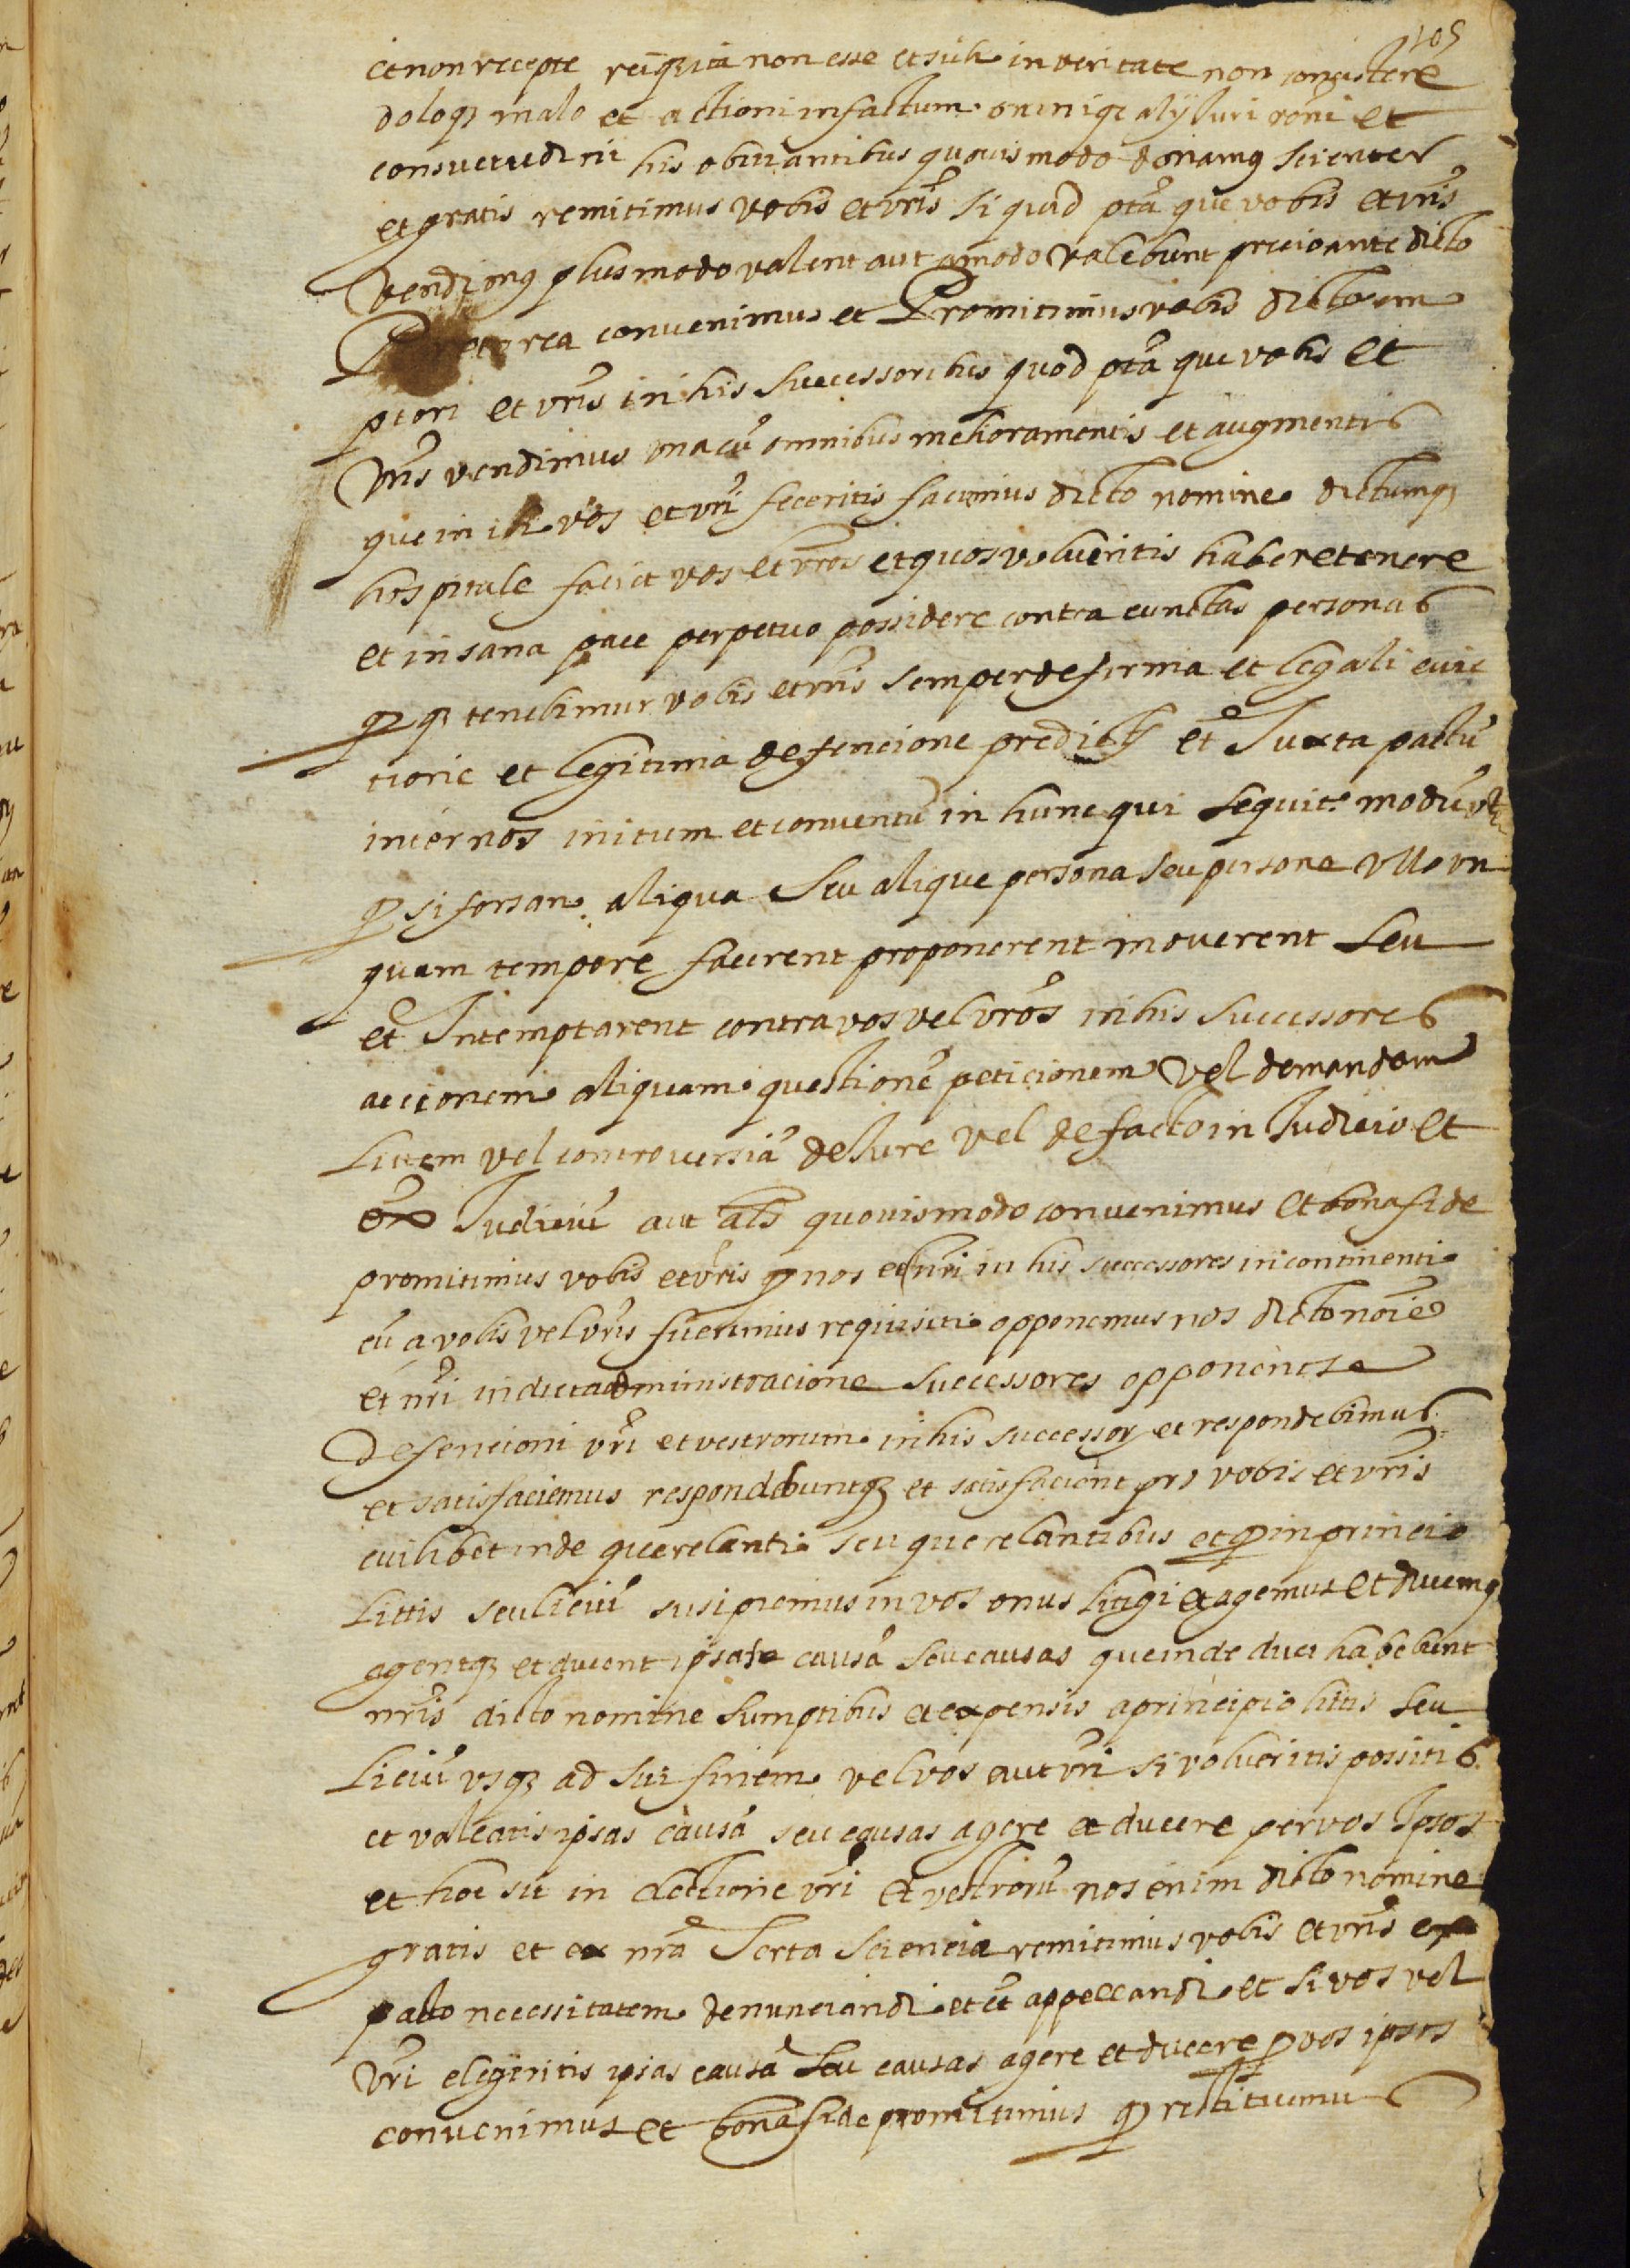 105
et non recepte rei q̃ ita non esse et sub in veritate non consistere
doloqȝ malo et actioni infactum omniqȝ alij Iuri rom̃ et
consuetudini his obviantibus quovismodo donamꝯ scienter
et gratis remitimus vobis et vr̃is si quid pt̃a que vobis et vr̃is
vendimꝯ plus modo valent aut amodo valebunt precio ante dicto
Preterea convenimus et Promitimus vobis dicto em
ptori et vr̃is in his successoribus quod pt̃a que vobis et
vr̃is vendimus una cũ omnibus melioramentis et augmentis
que in ibi vos et vr̃i feceritis faciemus dicto nomine dictumqȝ
hospitale faciet vos et vr̃os et quos volueritis habere tenere
et in sana pace perpetuo possidere contra cunctas personas
qȝ tenebimur vobis et vr̃is semper de firma et legali evic
tione et legitima defencione predictꝫ et Iuxta pactũ
inter nos initum et conventũ in hunc qui sequitr̃ modũ vzt
ꝙ si forsan aliqua seu alique persona seu persone ullo un
quam tempore facerent proponerent moverent seu
et Intemptarent contra vos vel vr̃os in his successores
accionem aliquam questionẽ peticionem vel demandam
Litem vel controversiã de Iure vel de facto in Iudicio et
ex̃ Iudiciũ aut al̃s quovismodo convenimus et bona fide
promitimus vobis et vr̃is ꝙ nos et nr̃i in his successores incontinenti
cũ a vobis vel vr̃is fuerimus requisiti opponemus nos dicto noĩe
et nr̃i in dicta administracione successores opponent se
defencioni vr̃i et vestrorum in his successorꝫ et respondebimus
et satisfaciemus respondebuntqȝ et satisfacient pro vobis et vr̃is
cuilibet inde querelanti seu querelantibus et ꝙ in principio
Littis seu liciũ suscipiemus in vos onus litigi et agemus et ducemꝯ
agentqȝ et ducent ipsas causã seu causas que inde duci habebunt
nr̃is dicto nomine sumptibus et expensis a principio litis seu
Liciũ vsqȝ ad sui finem vel vos aut vr̃i si volueritis possitis
et valeatis ipsas causã seu causas agere et ducere per vos Ipsos
et hoc sit in electione vr̃i et vestrorũ nos enim dicto nomine
gratis et ex nr̃a Certa sciencia remitimus vobis et vr̃is ex
pacto necessitatem denunciandi et et̃ appellandi et si vos vel
vr̃i elegeritis ipsas causã seu causas agere et ducere ꝑ vos ipsos
convenimus et bona fide promitimus ꝙ restituemus